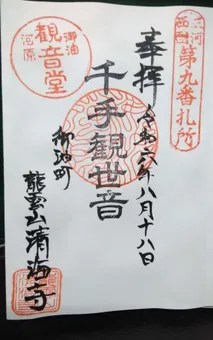 三河
西国
第九番札所
奉拝
令和六年八月十八日
千手観世音
御油
観音堂
河原
御油町
龍雲山清海寺